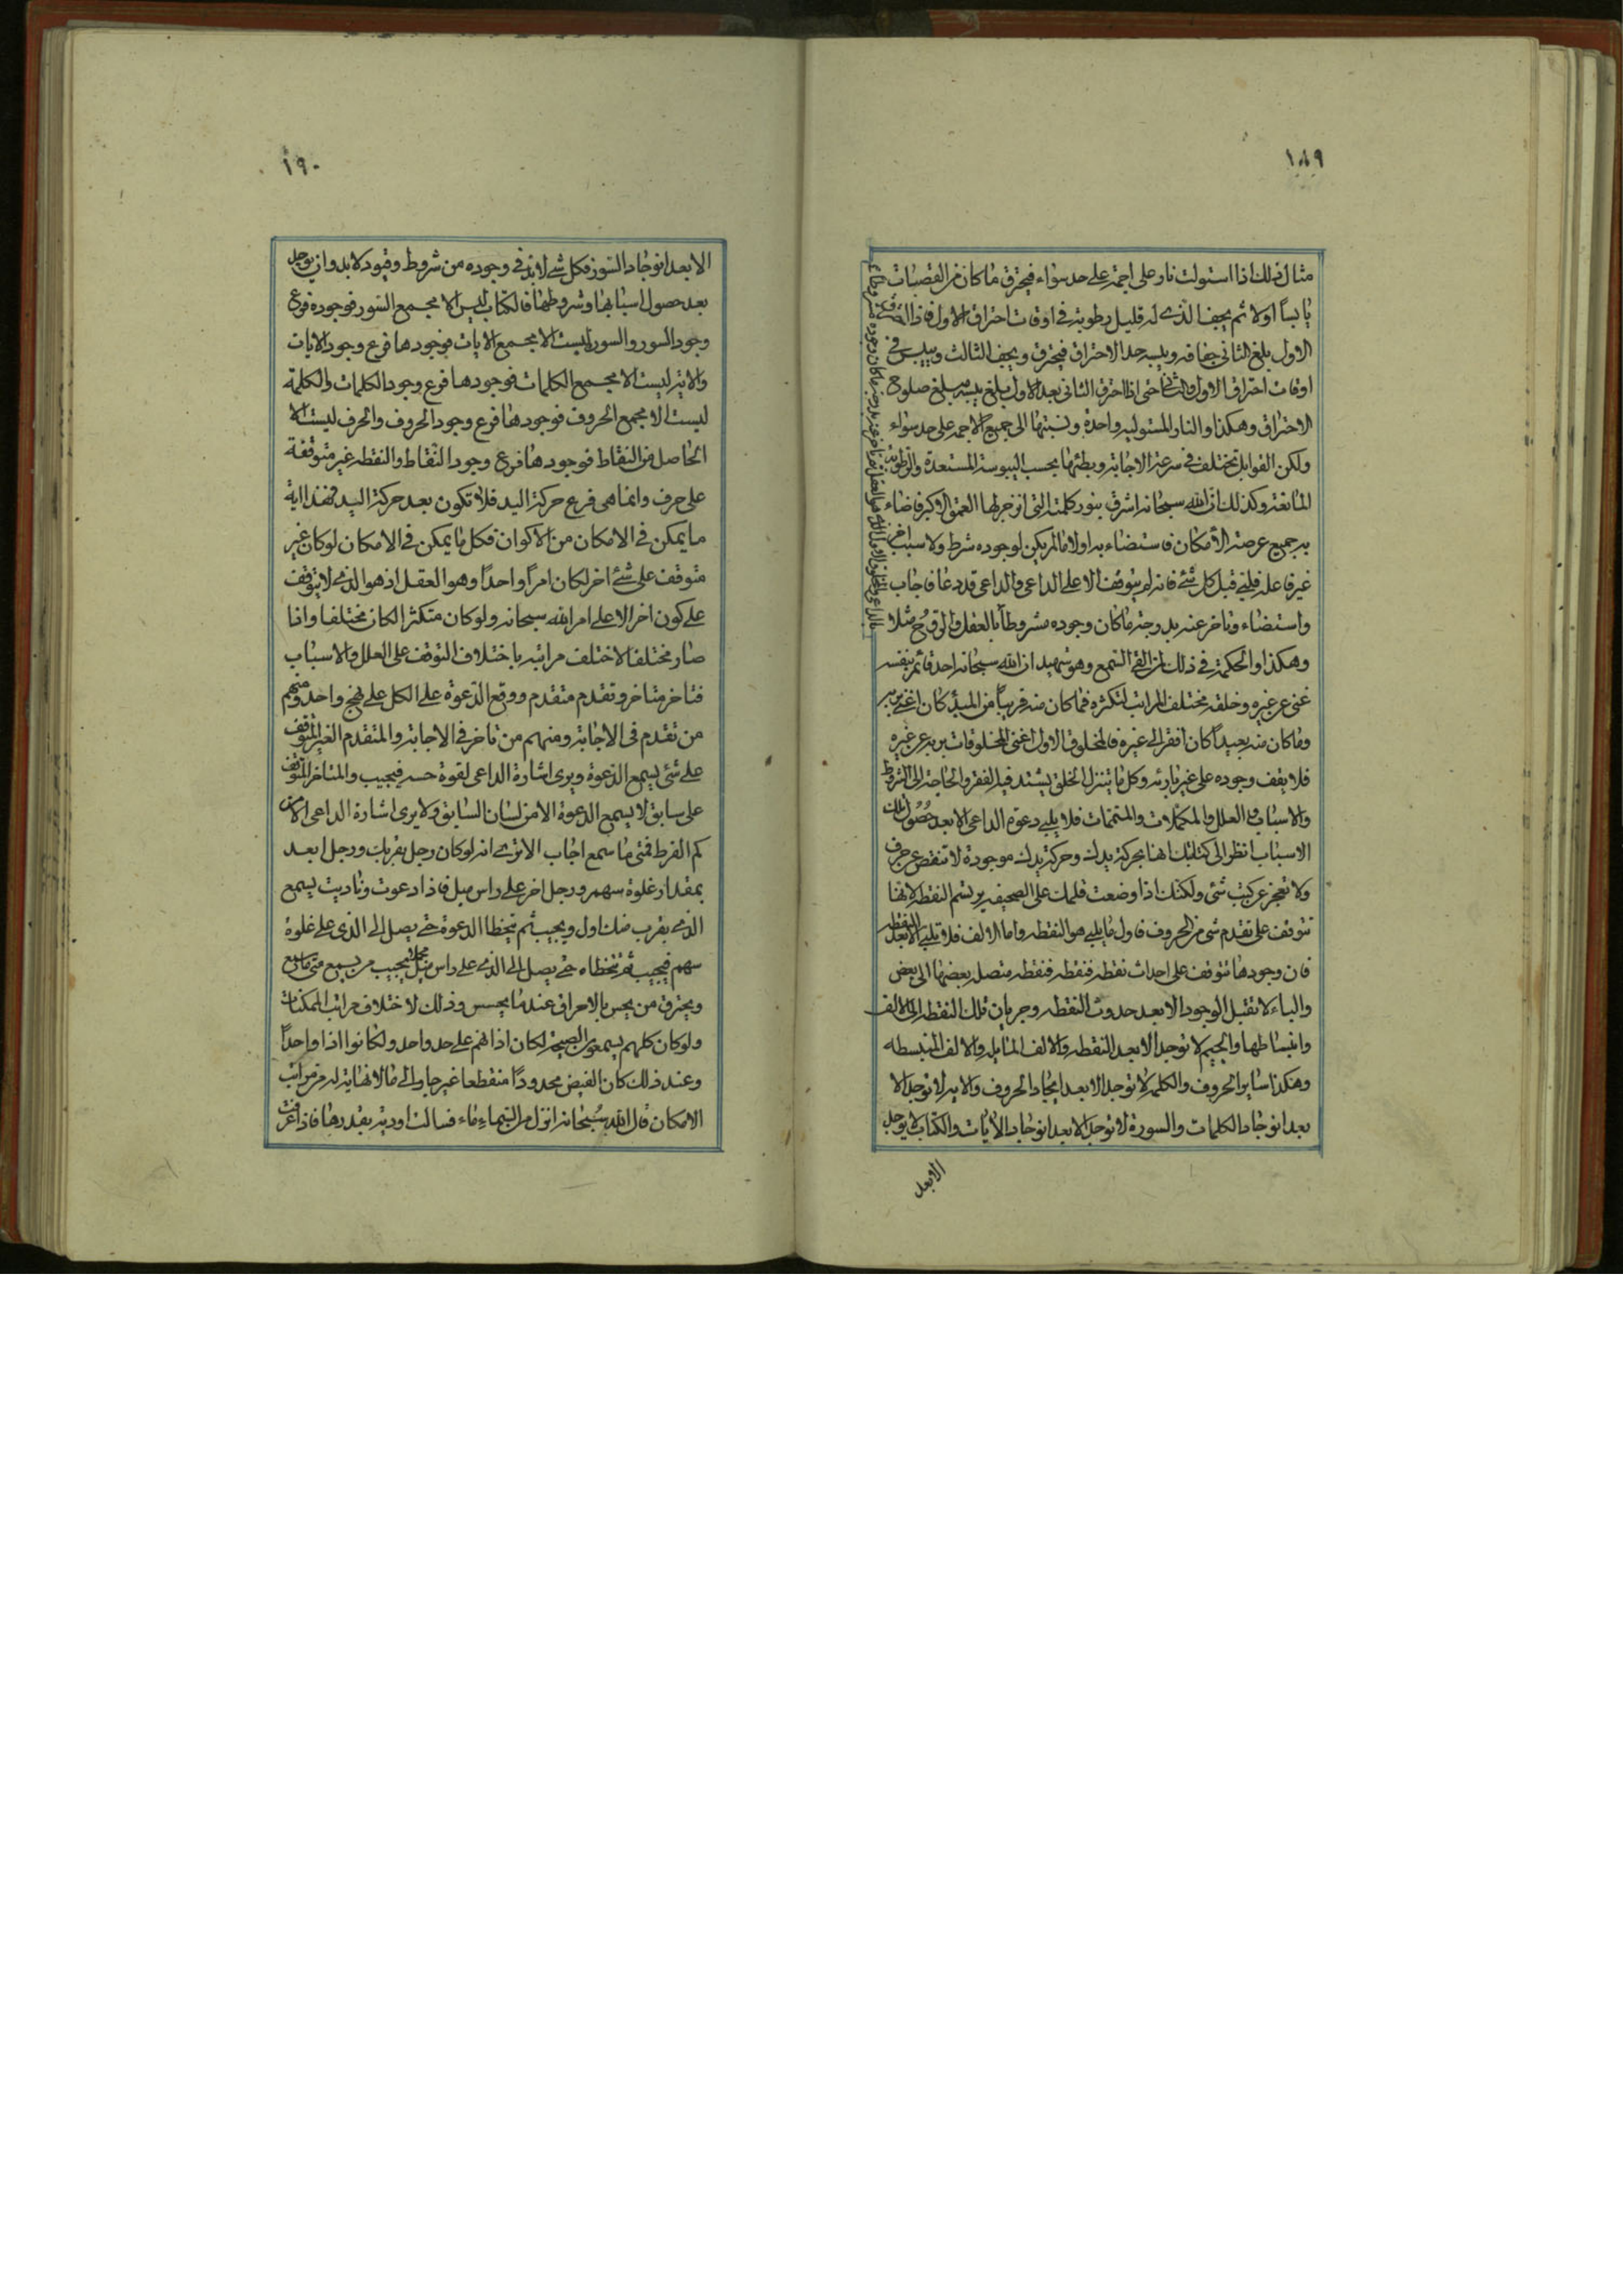 ١٨٩
مثال ذلك اذا استولت نار على اجمة على حد سواء فيحترق ما كان من القصبات
يابساً اولا ثم يجف الذى له قليل رطوبة فى اوقات احتراق الاول فاذا احترق
الاول بلغ الثانى جفافه ويبسه حد الاحتراق فيحترق ويجف الثالث وييبس فى
اوقات احتراق الاول والثانى حتى اذا احترق الثانى بعد الاول يبلغ يبسه مبلغ صلوح
الاحتراق وهكذا والنار المستولية واحدة ونسبتها الى جميع الاجمة على حد سواء
ولكن القوابل تختلف فى سرعة الاجابة وبطئها بحسب اليبوسة المستعدة والرطوبة
المانعة وكذلك ان الله سبحانه اشرق بنور كلمته التى انزجر لها العمق الاكبر فاضاء
به جميع عرصة الأمكان فاستضاء به اولا ما لم يكن لوجوده شرط ولا سبب اخر
غير فاعله قبل كل شئ فانه لم يتوقف الا على الداعى والداعى قد دعا فاجاب
واستضاء وتاخر عنه بدرجة ما كان وجوده مشروطاً بالعقل والروح مثلا
وهكذا والحكمة فى ذلك لمن القى السمع وهو شهيد ان الله سبحانه احد قائم بنفسه
غنى عن غيره وخلقه مختلف المراتب لتكثره فما كان منه قريباً من المبدء كان اغنى بربه
وما كان منه بعيداً كان افقر الى غيره فالمخلوق الاول اغنى المخلوقات بربه عن غيره
فلا يقف وجوده على غير بارئه وكل ما يتنزل الخلق يشتد فيه الفقر والحاجة الى الشروط
والاسباب والعلل والمكملات والمتممات فلا يلبى دعوة الداعى الا بعد حصول تلك
الاسباب انظر الى كتابتك انها بحركة يدك وحركة يدك موجودة لا تنقص عن حرف
ولا تعجز عن كتب شئ ولكنك اذا وضعت قلمك على الصحيفة يرتسم النقطة لانها
تتوقف على تقدم شئ من الحروف فاول ما يلبى هو النقطة واما الالف فلا تلبى الا بعد النقطة
فان وجودها تتوقف على احداث نقطة فنقطة فنقطة متصل بعضها الى بعض
والباء لا تقبل الوجود الا بعد حدوث النقطة وجريان تلك النقطة الى الالف
وانبساطها والجيم لا توجد الا بعد النقطة والالف المايلة والالف المنبسطه
وهكذا ساير الحروف والكلمة لا توجد الا بعد ايجاد الحروف والاية لا توجد الا
بعد انوجاد الكلمات والسورة لا توجد الا بعد انوجاد الأيات والكتاب لا يوجد
الابعد
١٩٠
الا بعد انوجاد السور فكل شئ لا بد فى وجوده من شروط وقيود لا بد وان يوجد
بعد حصول اسبابها وشروطها فالكتاب ليس الا مجمع السور فوجوده فرع
وجود السور والسور ليست الا مجمع الايات فوجودها فرع وجود الايات
والاية ليست الا مجمع الكلمات فوجودها فرع وجود الكلمات والكلمة
ليست الا مجمع الحروف فوجودها فرع وجود الحروف والحرف ليست الا
الحاصل من النقاط فوجودها فرع وجود النقاط والنقطه غير متوقفة
على حرف وانما هى فرع حركة اليد فلا تكون بعد حركة اليد فهذا اية
ما يمكن فى الامكان من الاكوان فكل ما يمكن فى الامكان لو كان غير
متوقف على شئ اخر لكان امراً واحداً وهو العقل اذ هو الذى لا يتوقف
على كون اخر الا على امر الله سبحانه ولو كان متكثرا لكان مختلفا واذا
صار مختلفا لاختلف مراتبه باختلاف التوقف على العلل والاسباب
فتاخر متاخر وتقدم متقدم ووقع الدعوة على الكل على نهج واحد ومنهم
من تقدم فى الاجابة ومنهم من تاخر فى الاجابة والمتقدم الغير المتوقف
على شئ يسمع الدعوة ويرى اشارة الداعى لقوة حسه فيجيب والمتاخر المتوقف
على سابق لا يسمع الدعوة الا من لسان السابق ولا يرى اشارة الداعى الا من
كم الفرط فمتى ما سمع اجاب الا ترى انه لو كان رجل بقربك ورجل ابعد
بمقدار غلوة سهم ورجل اخر على راس ميل فاذا دعوت وناديت يسمع
الذى بقرب منك اول ويجيب ثم يتخطا الدعوة حتى يصل الى الذى على غلوة
سهم فيجيب ثم تتخطاه حتى يصل الى الذى على راس ميل فيجيب من يسمع متى ما سمع
ويحترق من يحس بالاحراق عند ما يحسس وذلك لاختلاف مراتب الممكنات
ولو كان كلهم يسمعون الصيحة لكان اذانهم على حد واحد ولكانوا اذا واحداً
وعند ذلك كان الفيض محدوداً منقطعا غير جار الى ما لا نهاية له من مراتب
الامكان قال الله سبحانه انزل من السماء ماء فسالت اودية بقدرها فاذا عرفت